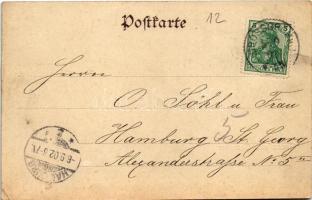 Postkarte
12
Herrn
O. Söhl u Frau
Hamburg St. Georg
5
Alexanderstraße No 5 III
-6.9.02.6-7V.